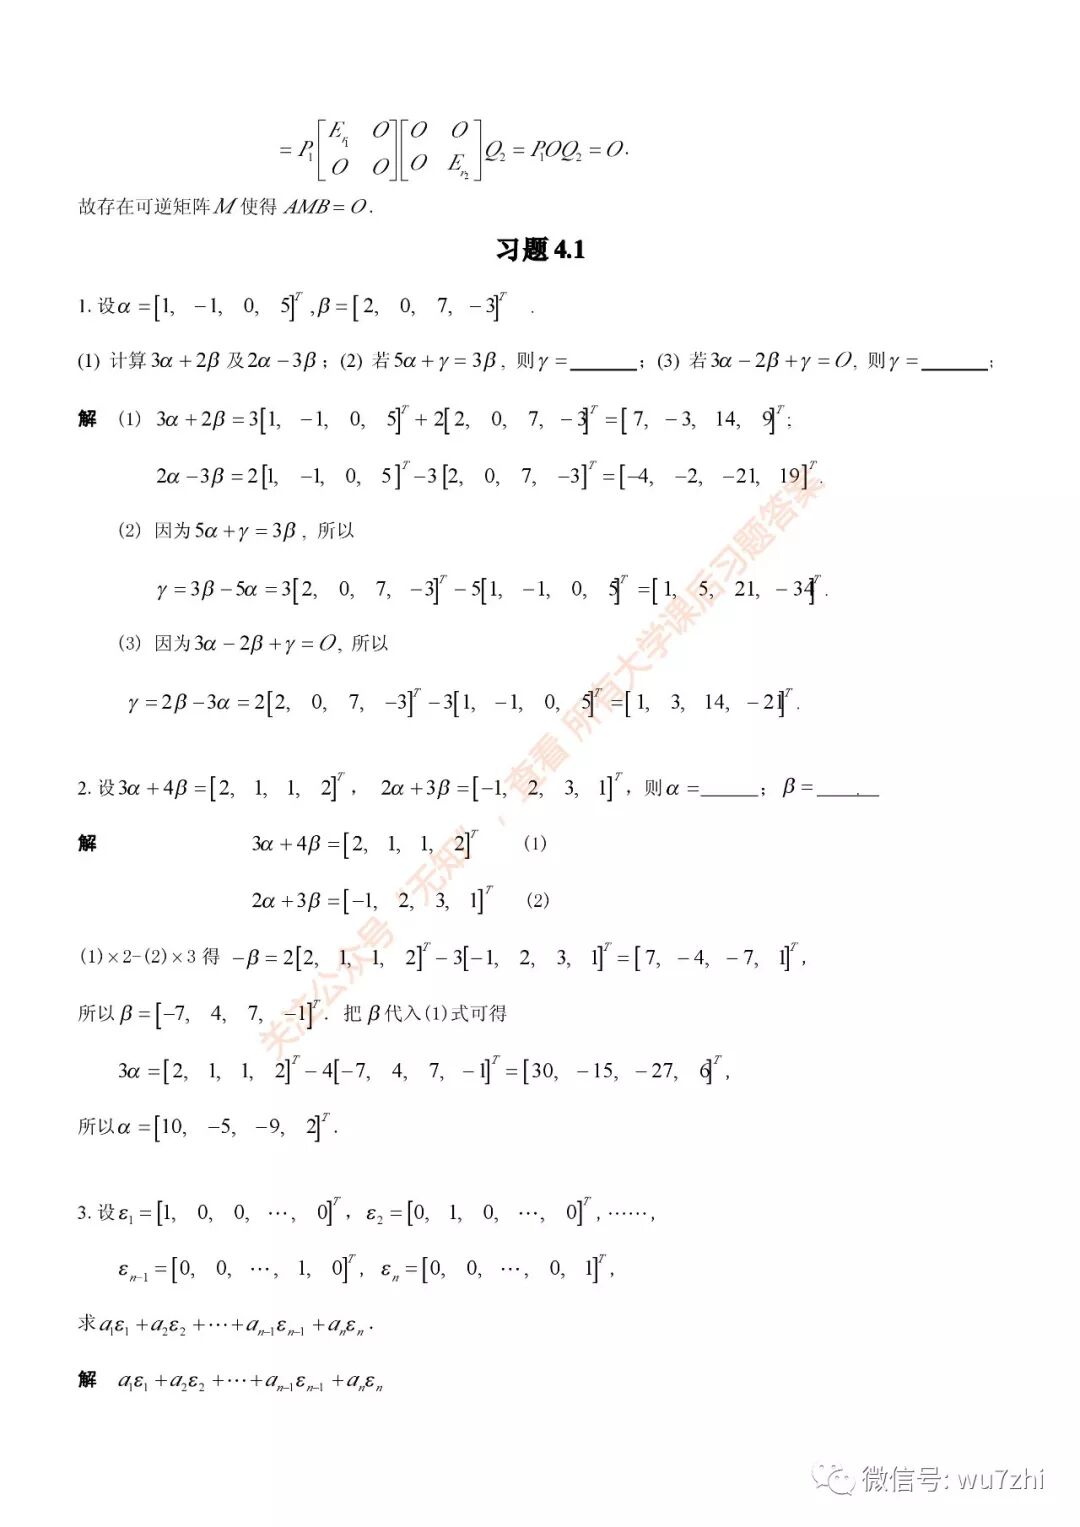 = P₁[E_{r₁} O; O O][O O; O E_{r₂}]Q₂ = P₁OQ₂ = O.
故存在可逆矩阵 M 使得 AMB = O.
习题 4.1
1. 设 α = [1, −1, 0, 5]^T, β = [2, 0, 7, −3]^T .
(1) 计算 3α + 2β 及 2α − 3β；(2) 若 5α + γ = 3β, 则 γ = ______；(3) 若 3α − 2β + γ = O, 则 γ = ______；
解 (1) 3α + 2β = 3[1, −1, 0, 5]^T + 2[2, 0, 7, −3]^T = [7, −3, 14, 9]^T;
2α − 3β = 2[1, −1, 0, 5]^T − 3[2, 0, 7, −3]^T = [−4, −2, −21, 19]^T.
(2) 因为 5α + γ = 3β, 所以
γ = 3β − 5α = 3[2, 0, 7, −3]^T − 5[1, −1, 0, 5]^T = [1, 5, 21, −34]^T.
(3) 因为 3α − 2β + γ = O, 所以
γ = 2β − 3α = 2[2, 0, 7, −3]^T − 3[1, −1, 0, 5]^T = [1, 3, 14, −21]^T.
2. 设 3α + 4β = [2, 1, 1, 2]^T, 2α + 3β = [−1, 2, 3, 1]^T, 则 α = ______；β = ____.__
解 3α + 4β = [2, 1, 1, 2]^T (1)
2α + 3β = [−1, 2, 3, 1]^T (2)
(1)×2-(2)×3 得 −β = 2[2, 1, 1, 2]^T − 3[−1, 2, 3, 1]^T = [7, −4, −7, 1]^T,
所以 β = [−7, 4, 7, −1]^T. 把 β 代入(1)式可得
3α = [2, 1, 1, 2]^T − 4[−7, 4, 7, −1]^T = [30, −15, −27, 6]^T,
所以 α = [10, −5, −9, 2]^T.
3. 设 ε₁ = [1, 0, 0, ⋯, 0]^T, ε₂ = [0, 1, 0, ⋯, 0]^T, ⋯⋯,
ε_{n−1} = [0, 0, ⋯, 1, 0]^T, ε_n = [0, 0, ⋯, 0, 1]^T,
求 a₁ε₁ + a₂ε₂ + ⋯ + a_{n−1}ε_{n−1} + a_nε_n.
解 a₁ε₁ + a₂ε₂ + ⋯ + a_{n−1}ε_{n−1} + a_nε_n
关注公众号“无知”，查看 所有大学课后习题答案
微信号: wu7zhi